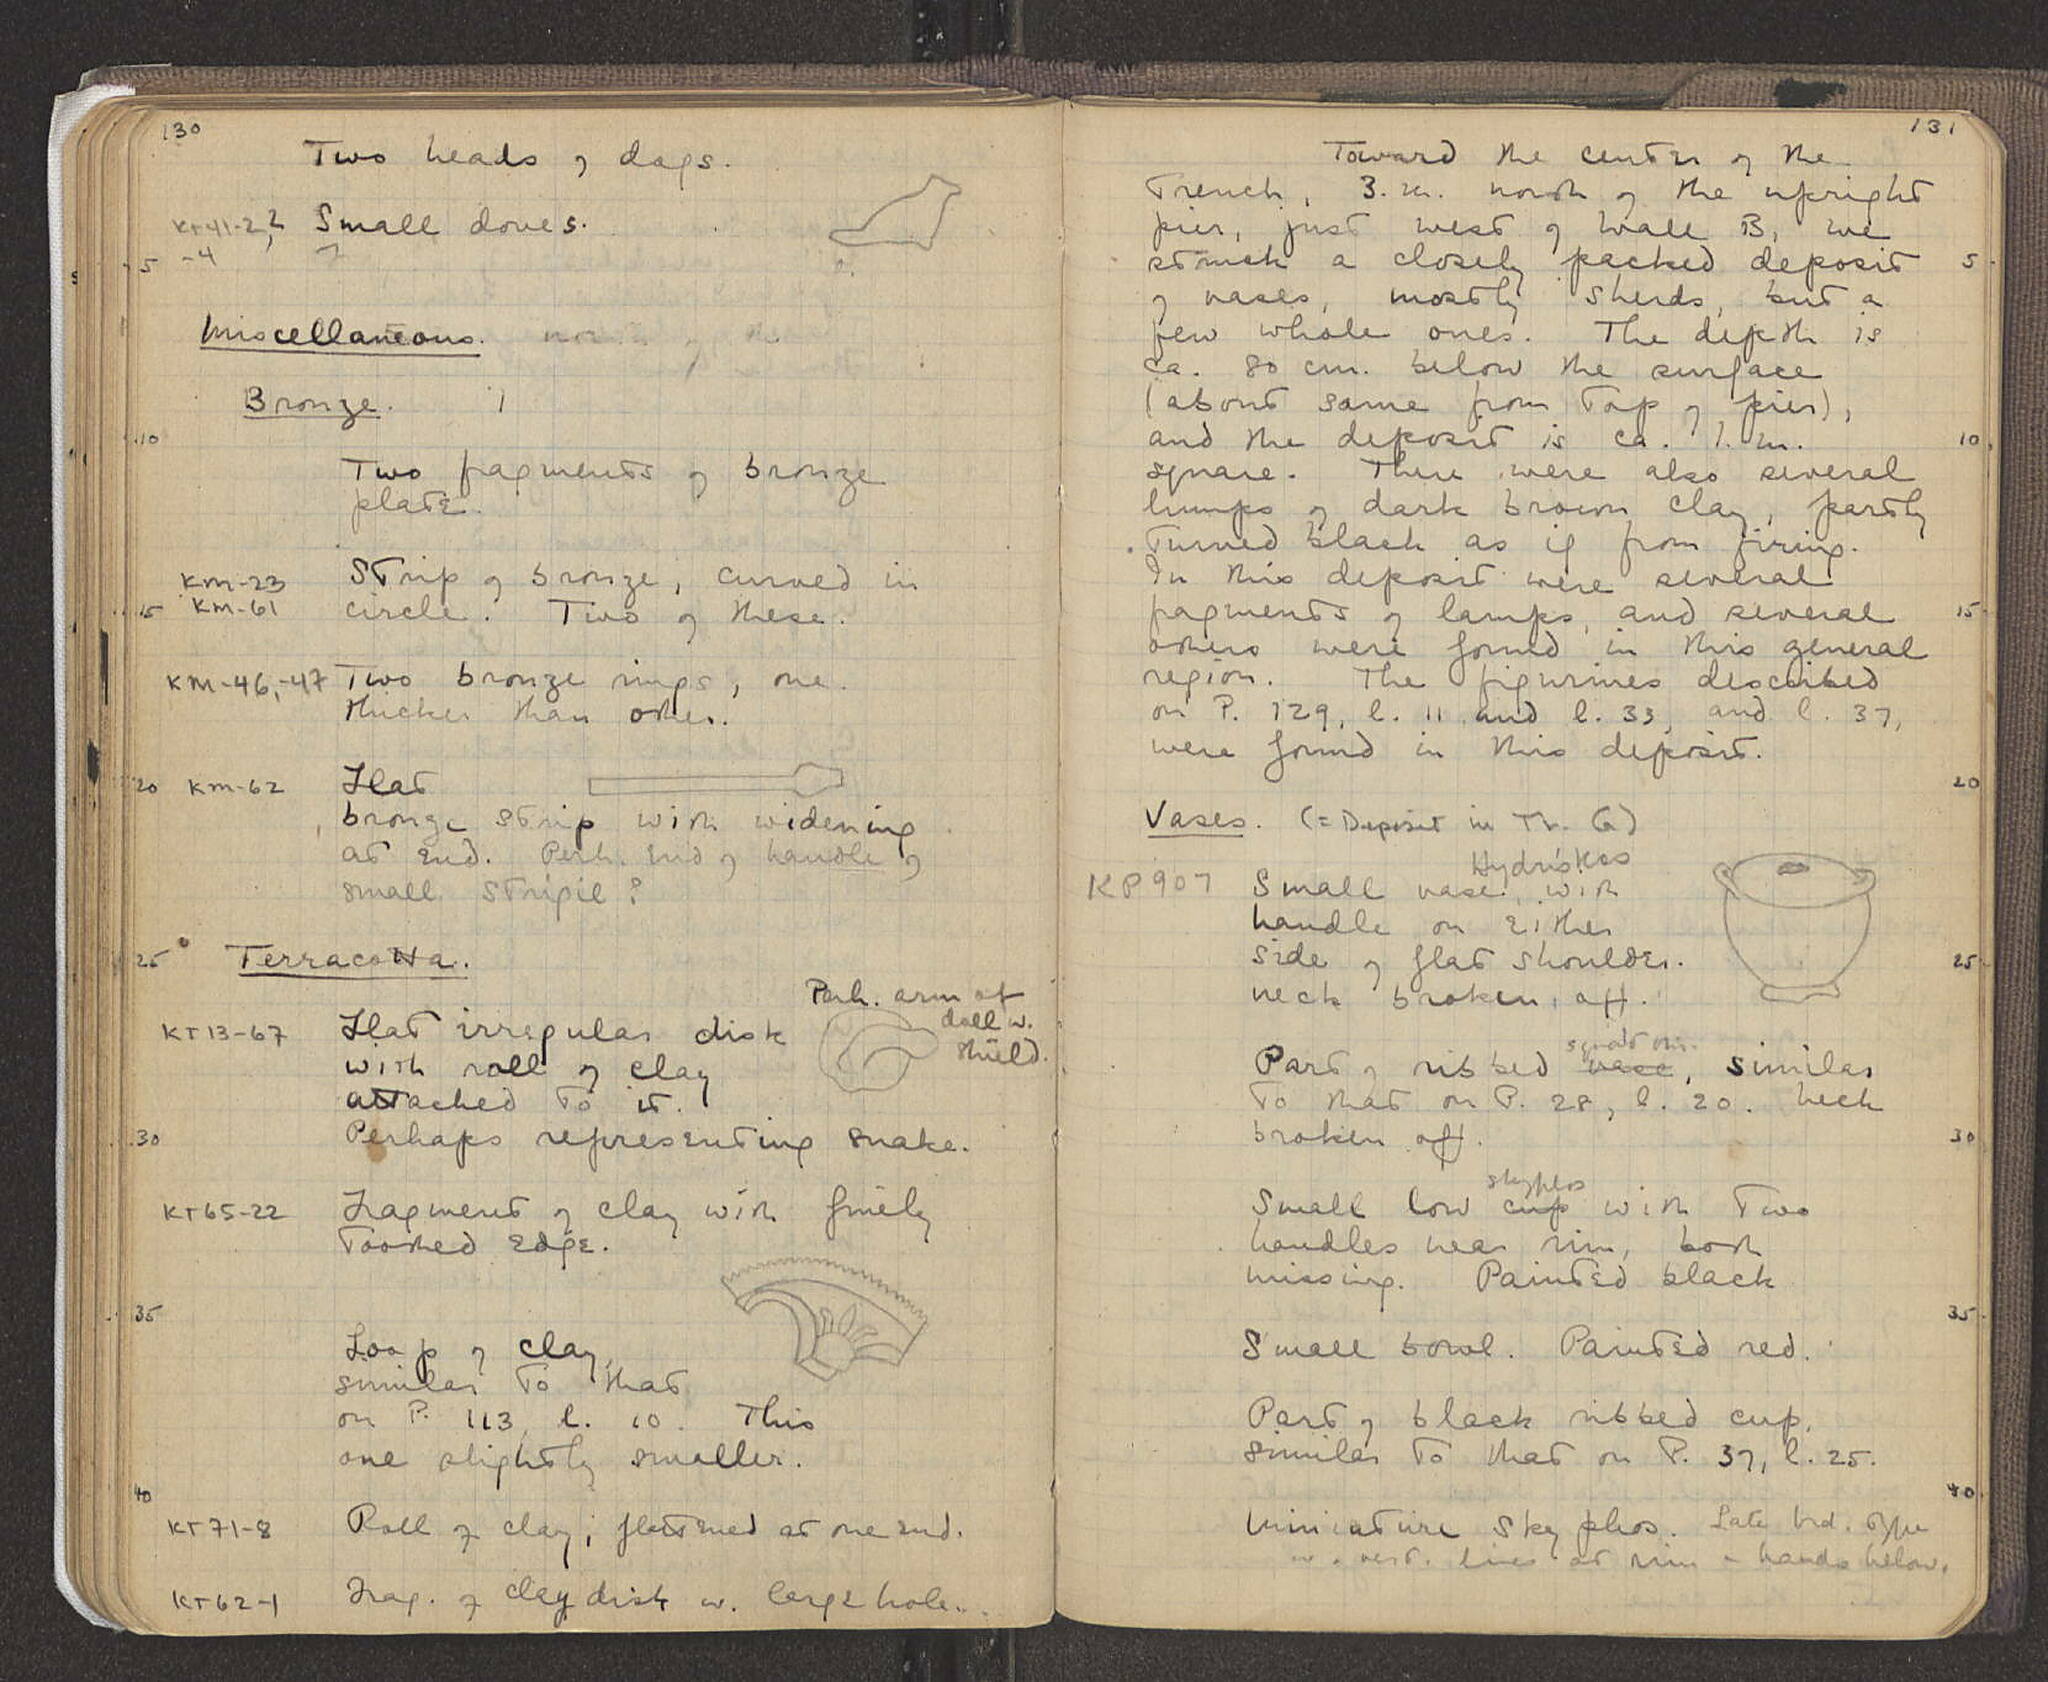 130
Two heads of dogs.
KT41-2,
-4
Small doves.
5
Miscellaneous.
Bronze.
10
Two fragments of bronze
plate.
KM-23 Strip of bronze, curved in
15 KM-61 circle. Two of these.
KM-46,-47 Two bronze rings, one
thicker than other.
20 KM-62 Flat
bronze strip with widening
at end. Perh. end of handle of
small strigil?
25 Terracotta.
Perh. arm of
doll w.
shield.
KT13-67 Flat irregular disk
with roll of clay
attached to it.
30 Perhaps representing snake.
KT65-22 Fragment of clay with finely
toothed edge.
35
Loop of clay,
similar to that
on P. 113, l. 10. This
one slightly smaller.
40
KT71-8 Roll of clay, flattened at one end.
KT62-1 Frag. of clay disk w. large hole.
131
Toward the center of the
trench, 3. m. north of the upright
pier, just west of wall B, we
struck a closely packed deposit 5
of vases, mostly sherds, but a
few whole ones. The depth is
ca. 80 cm. below the surface
(about same from top of pier),
and the deposit is ca. 1. m. 10
square. There were also several
lumps of dark brown clay, partly
turned black as if from firing.
In this deposit were several
fragments of lamps, and several 15
others were found in this general
region. The figurines described
on P. 129, l. 11 and l. 33, and l. 37,
were found in this deposit.
20
Vases. (= Deposit in Tr. G)
Hydriskos
KP907 Small vase, with
handle on either
side of flat shoulder. 25
neck broken off.
squat
Part of ribbed vase, similar
to that on P. 28, l. 20. neck
broken off. 30
skyphos
Small low cup with two
handles near rim, both
missing. Painted black
35
Small bowl. Painted red.
Part of black ribbed cup,
similar to that on P. 37, l. 25.
40
Miniature Skyphos. Late trd. type
w. vert. lines at rim - bands below.